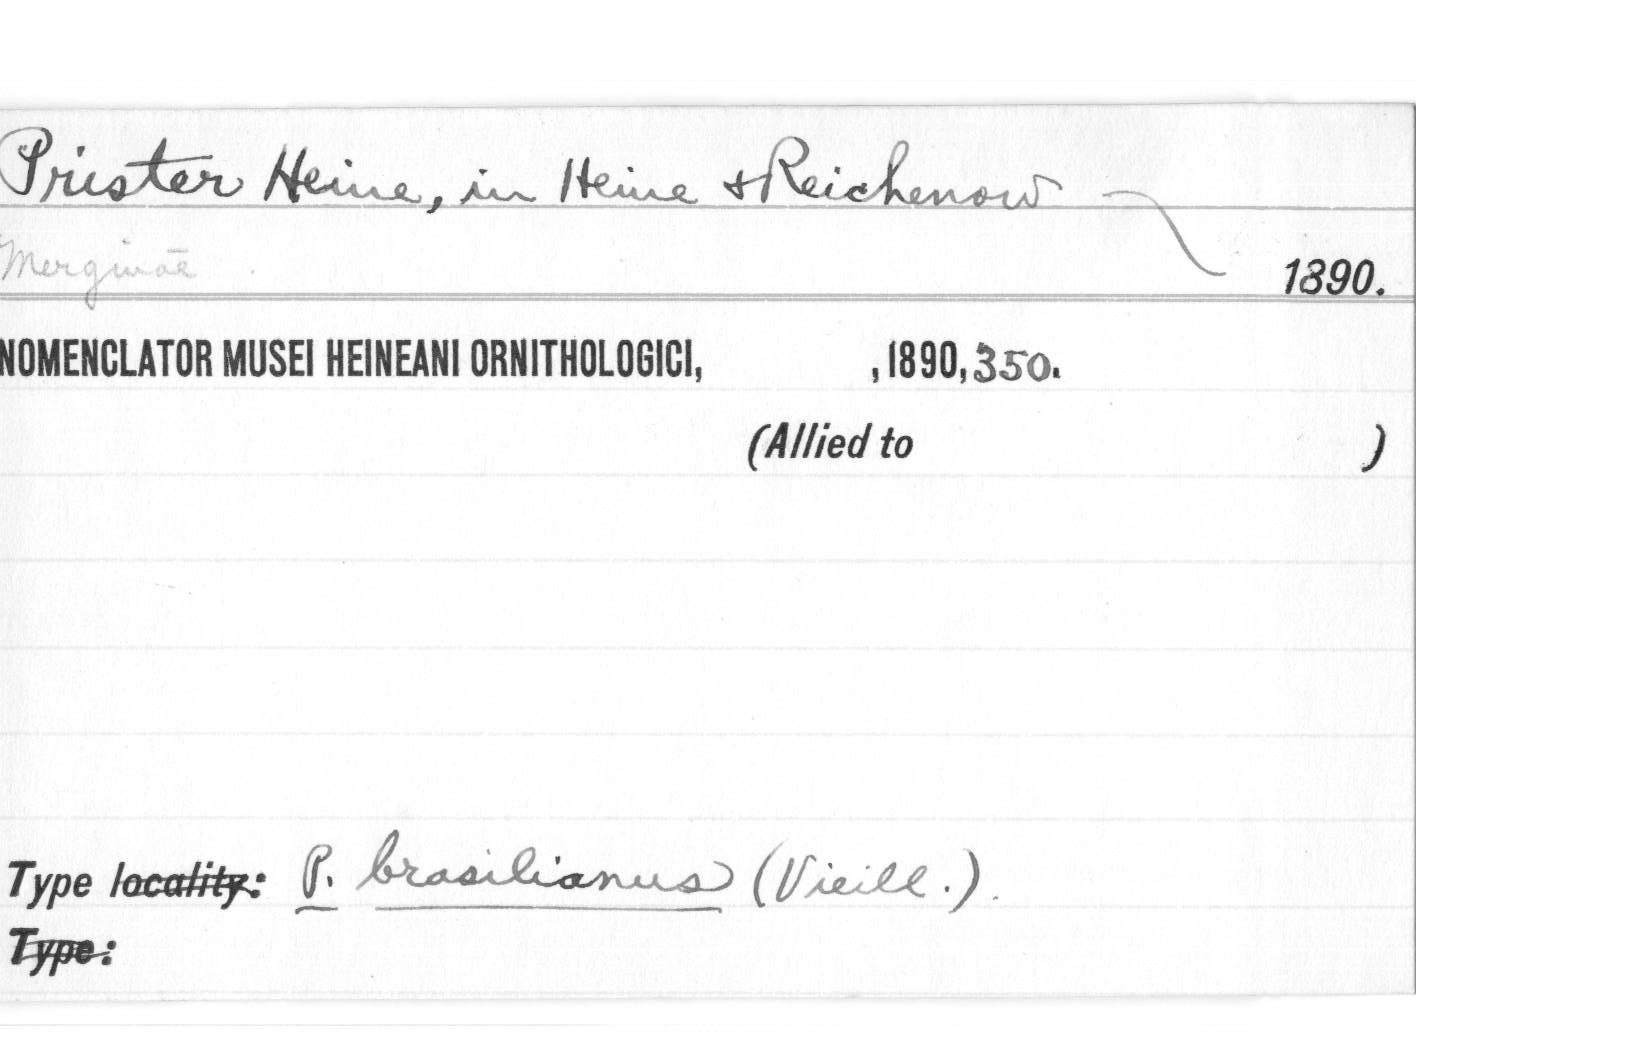 Prister Heine, in Heine & Reichenow
Merginae
1890.
NOMENCLATOR MUSEI HEINEANI ORNITHOLOGICI, , 1890, 350.
(Allied to )
Type locality: P. brasilianus (Vieill.).
Type: